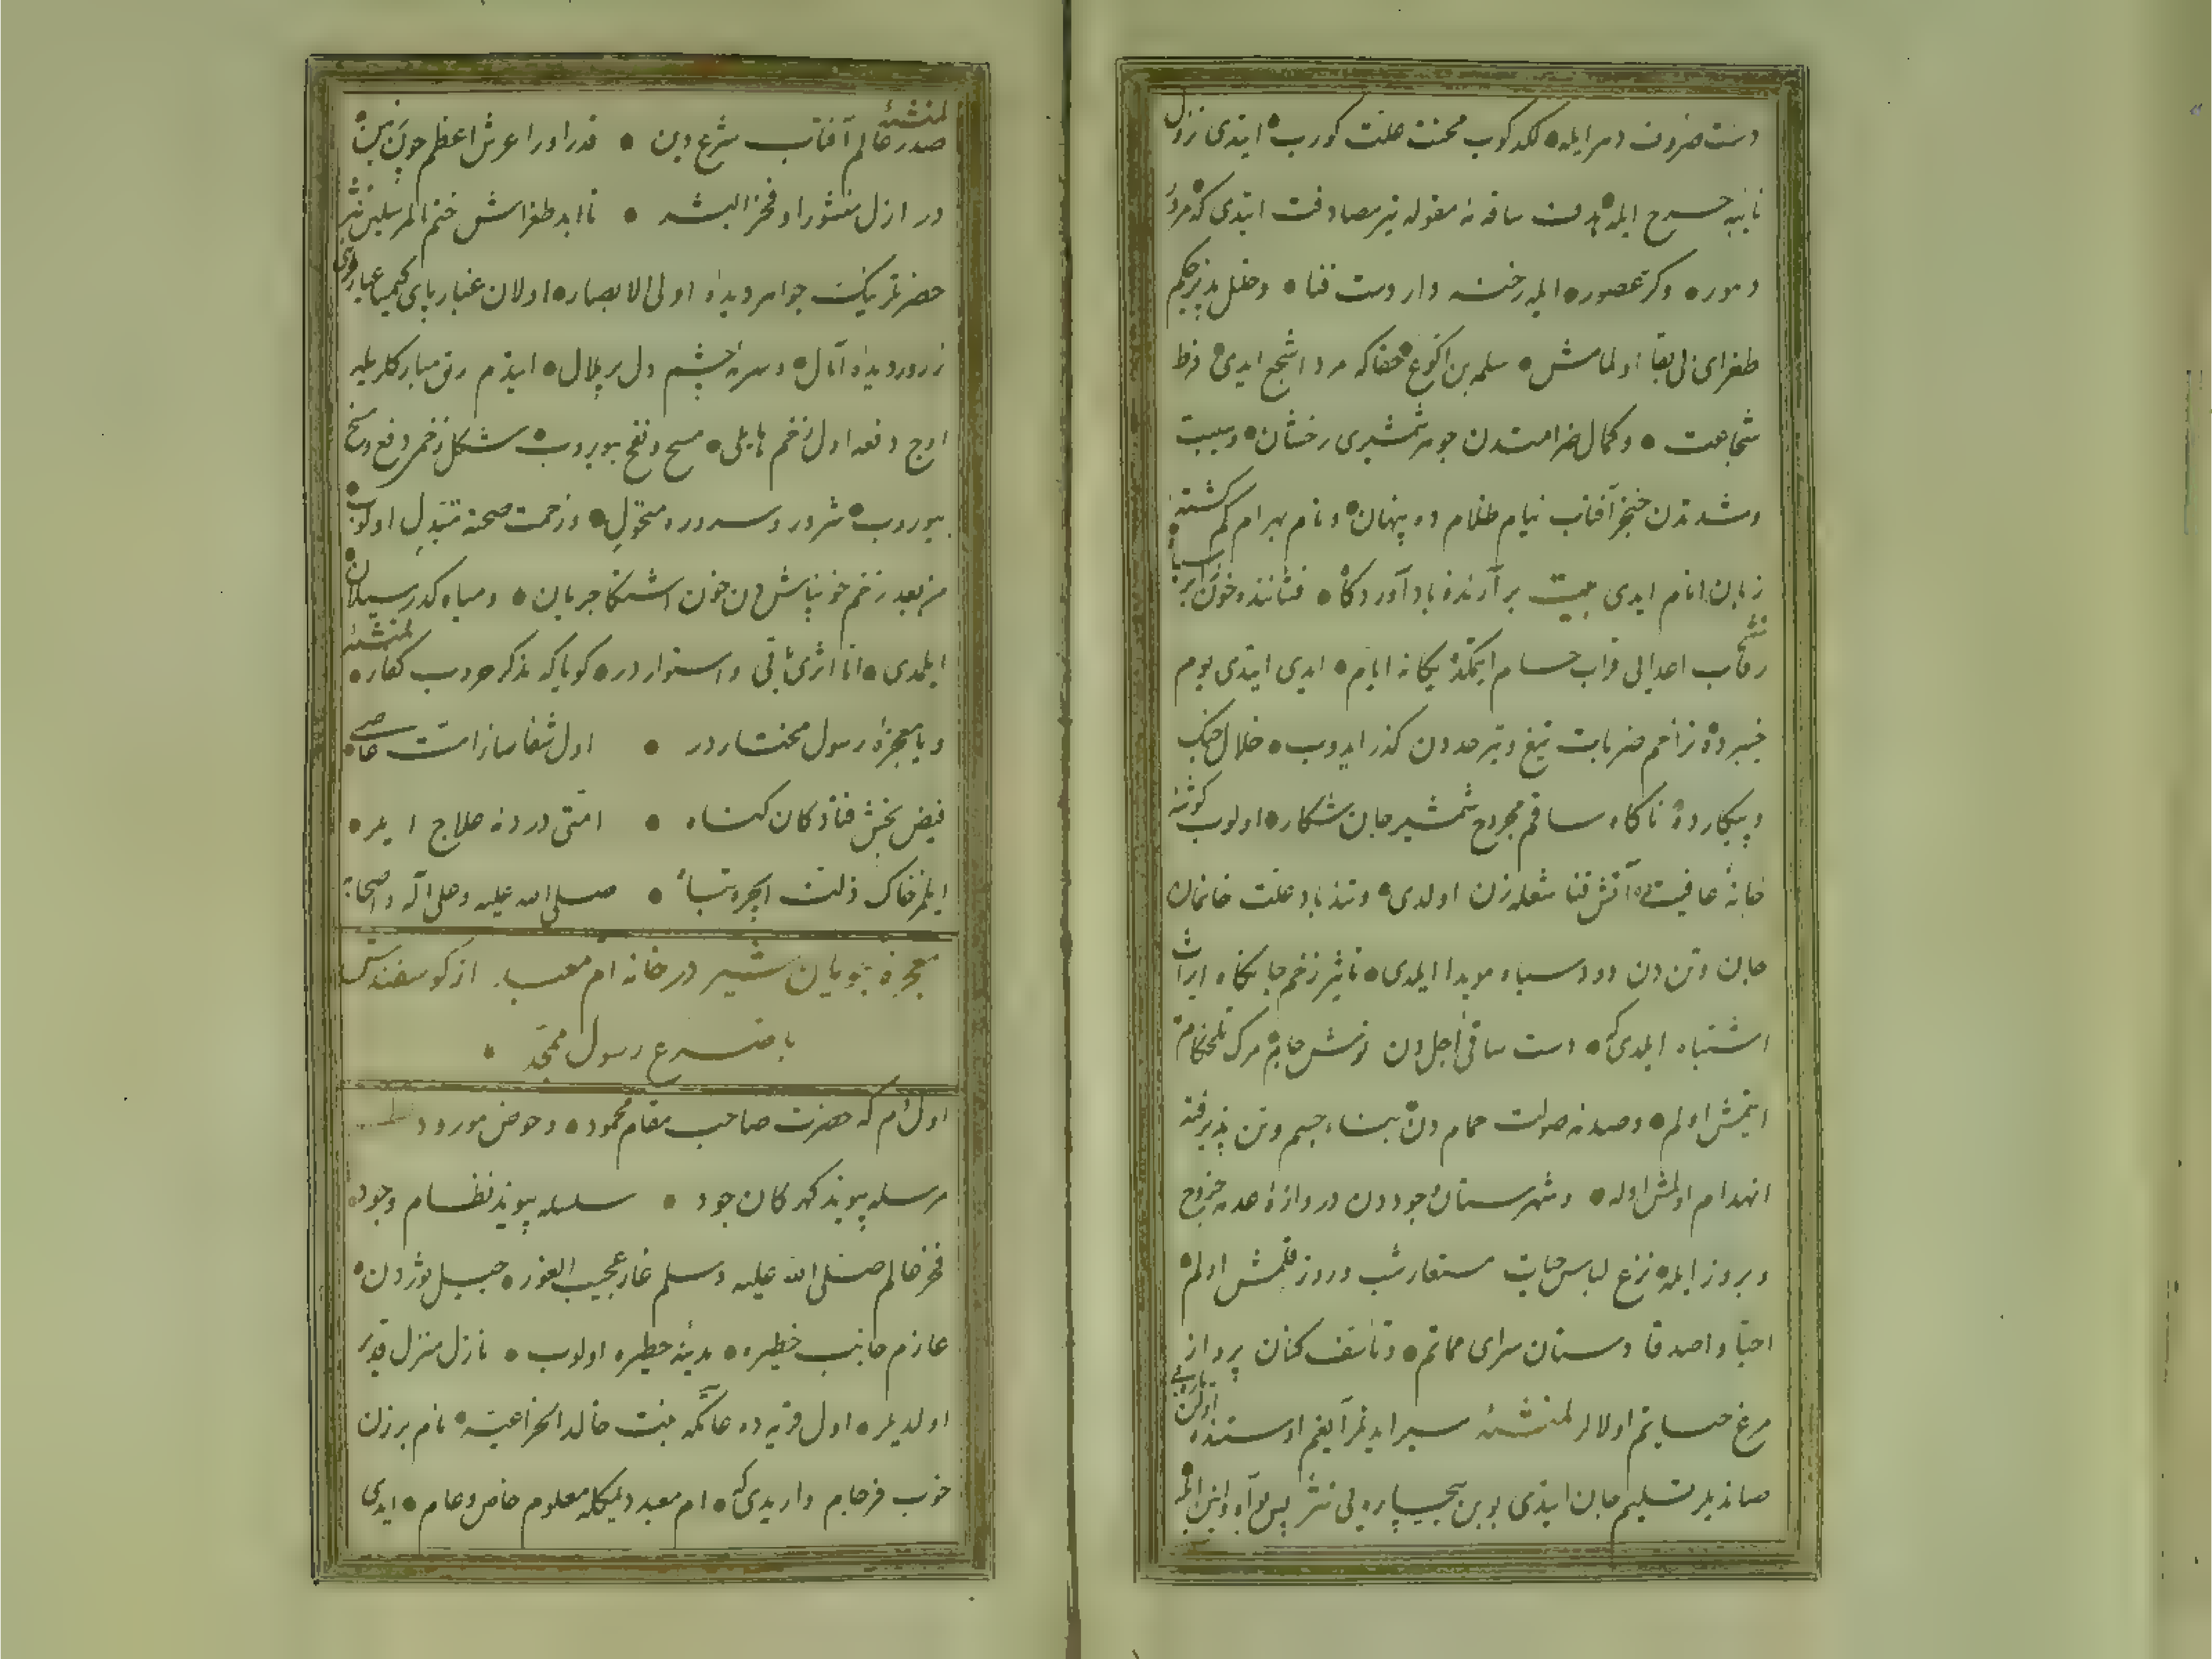 دست ضرون دمر ایله لکدکوب محنت علت کورب ایتدی نزول
نایبه جرح ایله مدت ساقه نه مقوله تیر مصادفت ایتدی که مرد
دموره وکر عصوره ایله رخنه دار دست فنا وخلل پذیر حکم
طغرای لی بقا اولمامش سلمه بن اکوع حقاکه مرد اشجع ایدی فرط
شجاعت وکمال ضرامتدن جوهر شمشیری رخشان وهیبت
وشدتدن خنجر آفتاب نیام ظلام ده پنهان ونام بهرام کم کشته
زبان انام ایدی بیت بر آرنده باد آوردکاه فشاننده خون
رقاب اعدایی قراب حسام ایتمکده یکانه ایام ایدی ایتدی یوم
خیبرده زخم ضربات تیغ وتیر حددن کذر ایدوب خلال جنک
وپیکارده ناکاه ساقم مجروح شمشیر جان شکار اولوب کوشه
خانه عافیتده آتش فنا شعله زن اولدی وتندباد علت خانمان
جان وتن دن دود سیاه هویدا ایلدی تاثیر زخم جانکاه ایراث
اشتباه ایلدی که دست ساقی اجل دن نوش جام مرک تلخکام
ایتمش اولم وصدمه صولت حمام دن بناء جسم وتن پذیرفته
انهدام اولمش اوله وشهرستان وجوددن دروازه عدمه خروج
وبروز ایله نزع لباس حیات مستعار شب وروز قلمش اولم
احبا واصدقا دستان سرای ماتم وتاسف کنان پرواز
مرغ حیاتم اولالر لمنشئه سیر ایدنلر آیغم اوستنده اولن یاره یی
صاندیلر تسلیم جان ایتدی بو بن بیچاره یی نثر پس بو آه وانین ایله
لمنشئه
صدر عالم آفتاب شرع ودین قدر اورا عرش اعظم چون زمین
در ازل منشور او فخر البشر تا ابد طغراش ختم المرسلین نثر
حضرتلرینک جواهر دیده اولی الابصار اولان غبار پای کیمیا عیارلری
زرور دیده آمال وسرمه چشم دل پر ملال ایتدم رق مبارکلریله
اوج دفعه اول زخم هایلی مسح ونفخ بیوروب شکل زخمی دفع ونسخ
بیوروب شرور وسروره متحول وزحمت صحته متبدل اولوب
من بعد زخم خونپاش دن خون اشتکا جریان ومیاه کدر سیلان
ایلمدی اما اثری باقی واستوار در کویا که مذکر حروب کفار لمنشئه
ویا معجزه رسول مختار در اول شفاساز امت عاصی
فیض بخش فتادکان کناه امتی دردنه علاج ایلر
ایلمز خاک ذلت ایچره تباه صلی الله علیه وعلی آله واصحابه
معجزه جویان شیر در خانه ام معبد از کوسفندش
با ضرع رسول ممجد
اول دم که حضرت صاحب مقام محمود وحوض مورود
مرسله پیوند کهر کان جود سلسله پیوند نظام وجود
فخر عالم صلی الله علیه وسلم غار عجیب الغور جبل ثوردن
عازم جانب خطیره مدینه حطیره اولوب نازل منزل قدیر
اولدیلر اول قریه ده عاتکه بنت خالد الخزاعیه نام بر زن
خوب فرجام وار یدی که ام معبد دیمکله معلوم خاص وعام ایدی